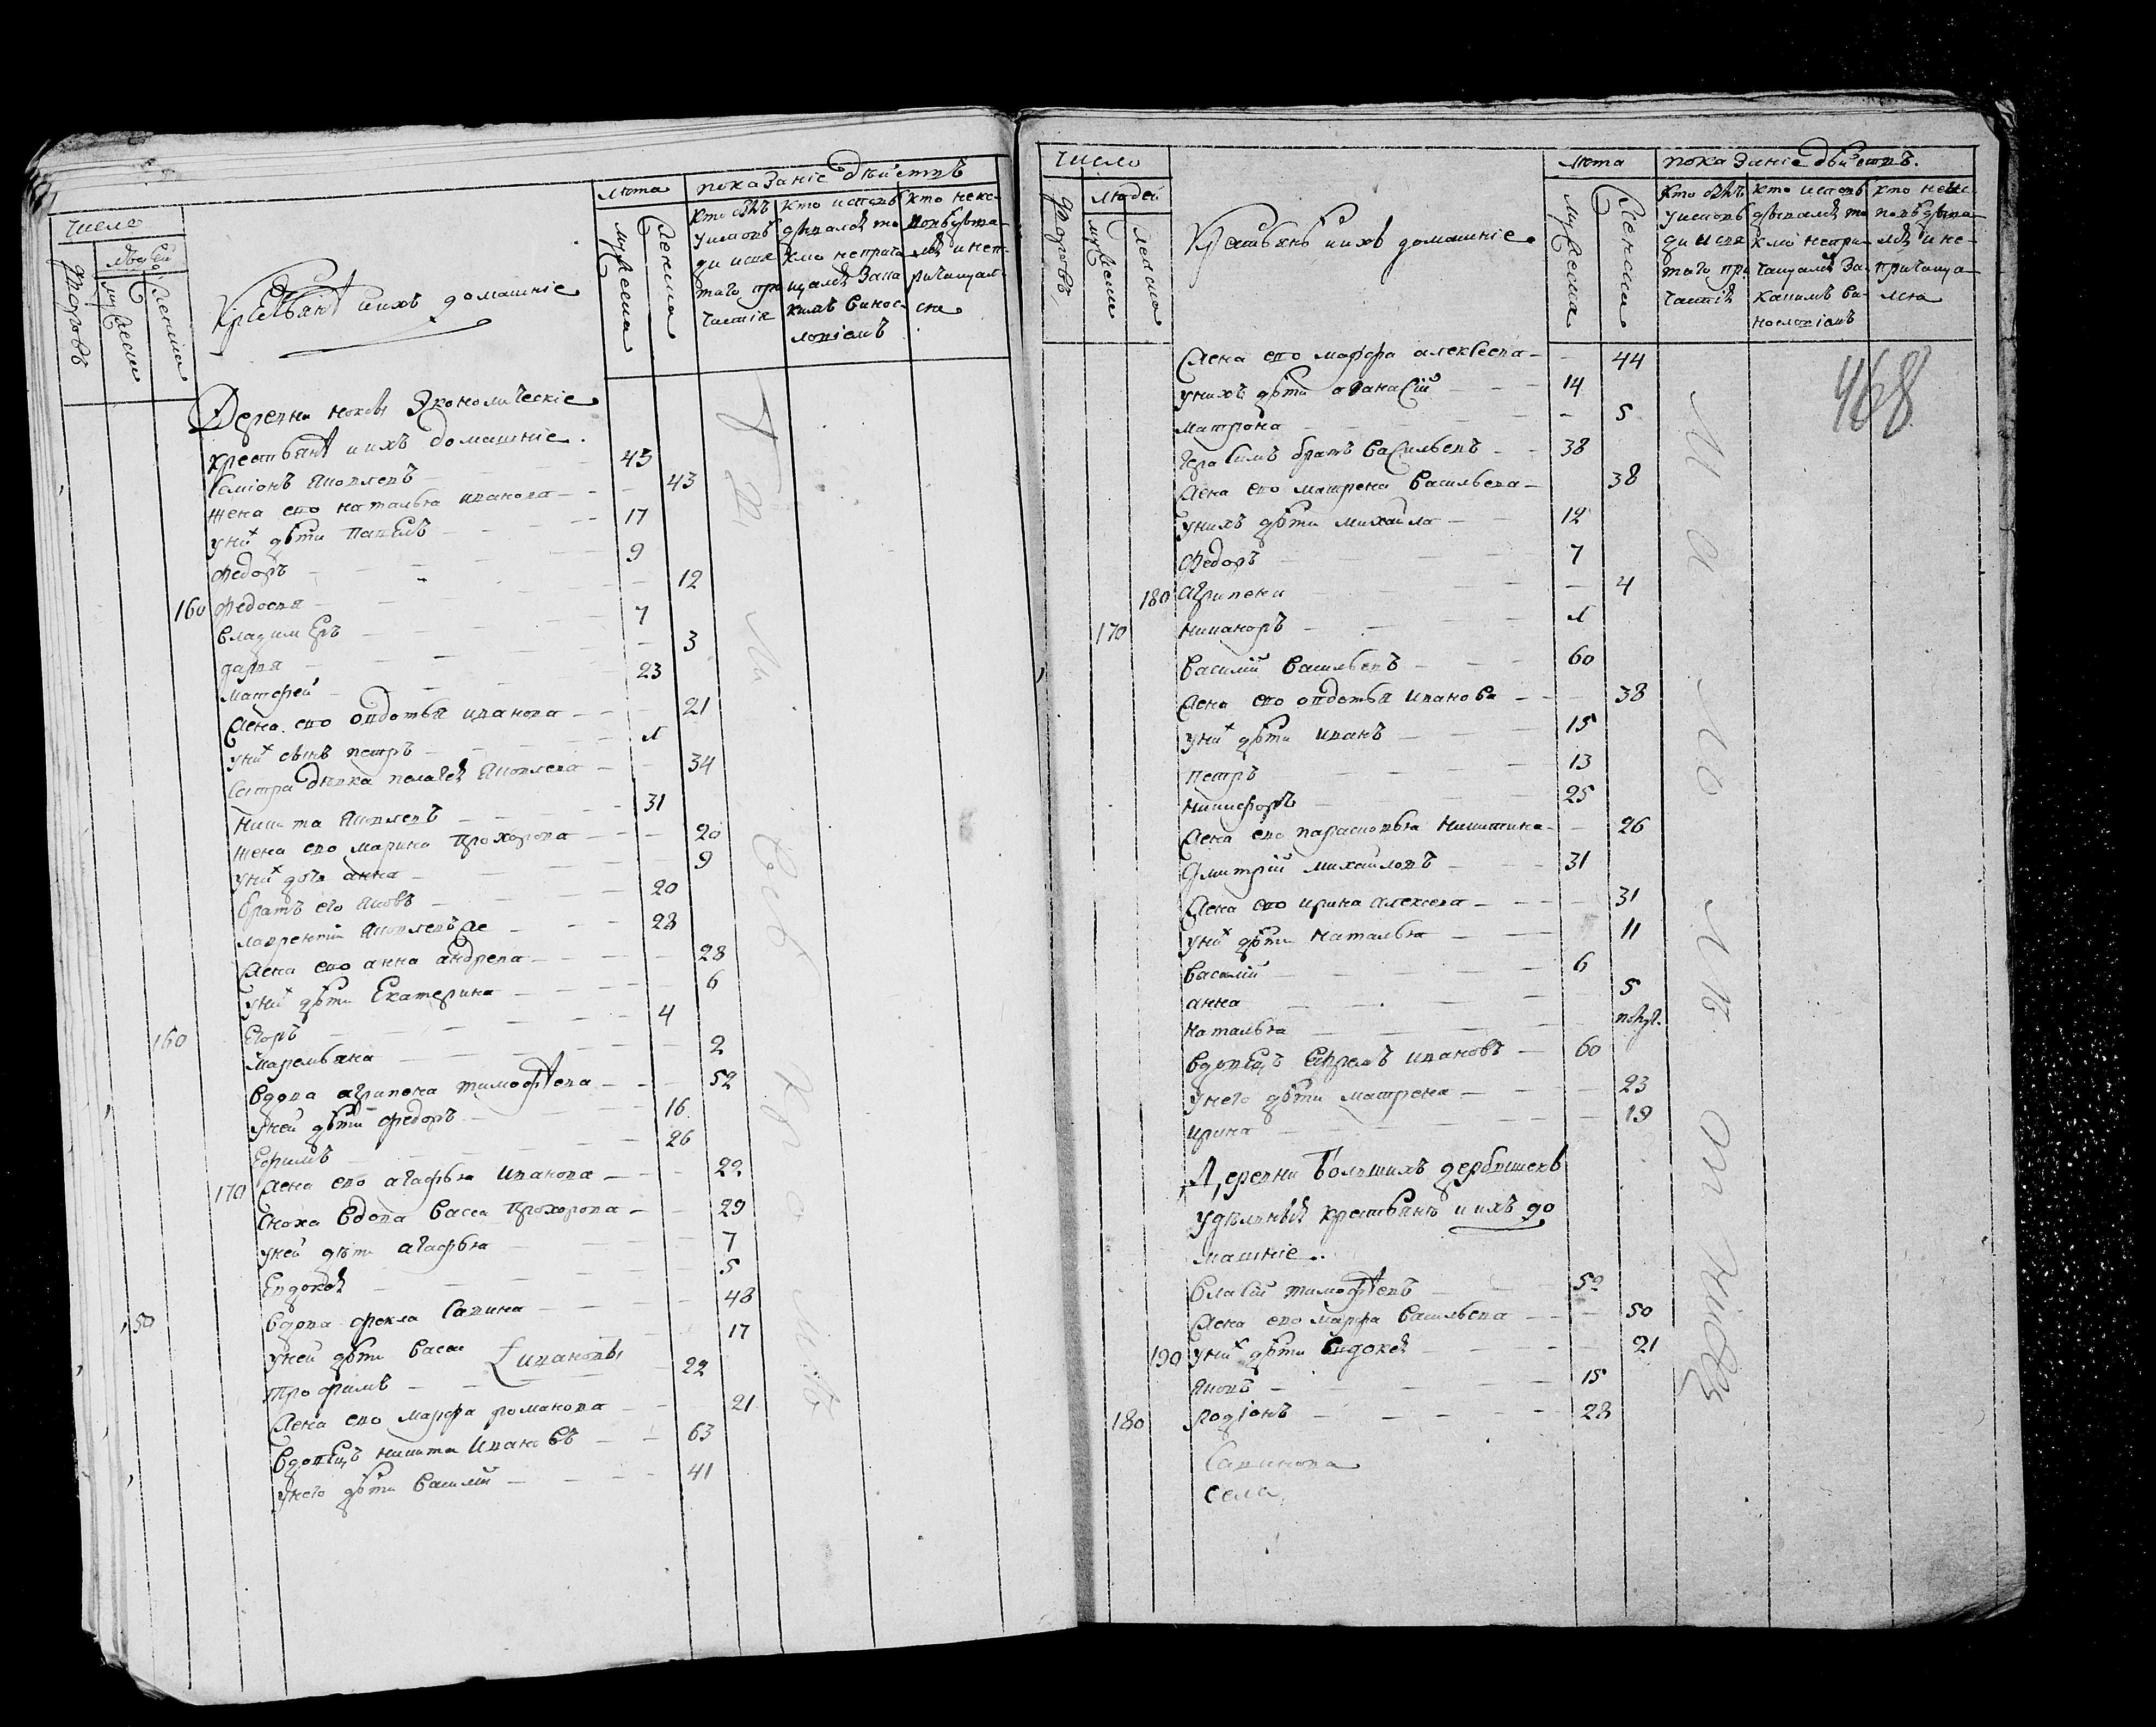 Число
людей
дворовъ
мужеска
женска
Крестьянѣ ихъ домашніе
лета
мужеска
женска
показаніе действъ
кто былъ у исповѣди и святаго причастія
кто исповѣдался токмо не причащался за какимъ винословіемъ
кто не исповѣдался и не причащался
Деревни экономическіе
крестьянѣ и ихъ домашніе.
Семіонъ Яковлевъ 45
жена ево наталья иванова 43
у них дѣти Павелъ 17
Федоръ 9
160 Федосья 12
Владимеръ 7
дарья 3
Матфей 23
Жена ево овдотья иванова 21
у них сынъ петръ 1
Сестра девка пелагѣя Яковлева 34
Никита Яковлевъ 31
жена ево марина Прохорова 20
у них дочь анна 9
братъ его Яковъ 20
лаврентій Яковлевъ же 28
Жена ево анна андрева 28
у них дѣти Екатерина 6
160 Егоръ 4
Маремьяна 2
вдова агрипена тимофѣева 52
у ней дѣти федоръ 16
Ефимъ 26
170 Жена ево агафья иванова 22
сноха вдова васса Прохорова 29
у ней дети агафья 7
Евдокѣя 5
вдова фекла Савина 48
50 у ней дѣти васса 17
Трофимъ ивановы 22
Жена ево марфа романова 21
вдовецъ никита Ивановъ 63
у него дѣти василій 41
Число
людей
дворовъ
мужеска
женска
Крестьянѣ и ихъ домашніе
лета
мужеска
женска
показаніе действъ.
кто былъ у исповѣди и святаго причастія
кто исповѣдался токмо не причащался за какимъ винословіемъ
кто не исповѣдался и не причащался
468
Жена ево марфа алексеева 44
у нихъ дѣти афанасій 14
матрона 5
Герасимъ братъ васильевъ 38
Жена ево матрена васильева 38
у нихъ дѣти михайла 12
Федоръ 7
180 агрипена 4
170 никаноръ 1
василій васильевъ 60
Жена ево овдотья иванова 38
у них дѣти иванъ 15
петръ 13
никифоръ 25
Жена ево парасковья никитина 26
Дмитрій михайловъ 31
Жена ево ирина алексева 31
у них дѣти наталья 11
василій 6
анна 5
наталья полуг.
вдовецъ Ефремъ ивановъ 60
у него дѣти матрена 23
ирина 19
Деревни большихъ дербышевъ
удельныѣ крестьянѣ и ихъ до
машніе.
власій тимофѣевъ 52
Жена ево марфа васильева 50
190 у них дѣти Евдокѣя 21
Яковъ 15
180 Родіонъ 28
Савинова
села